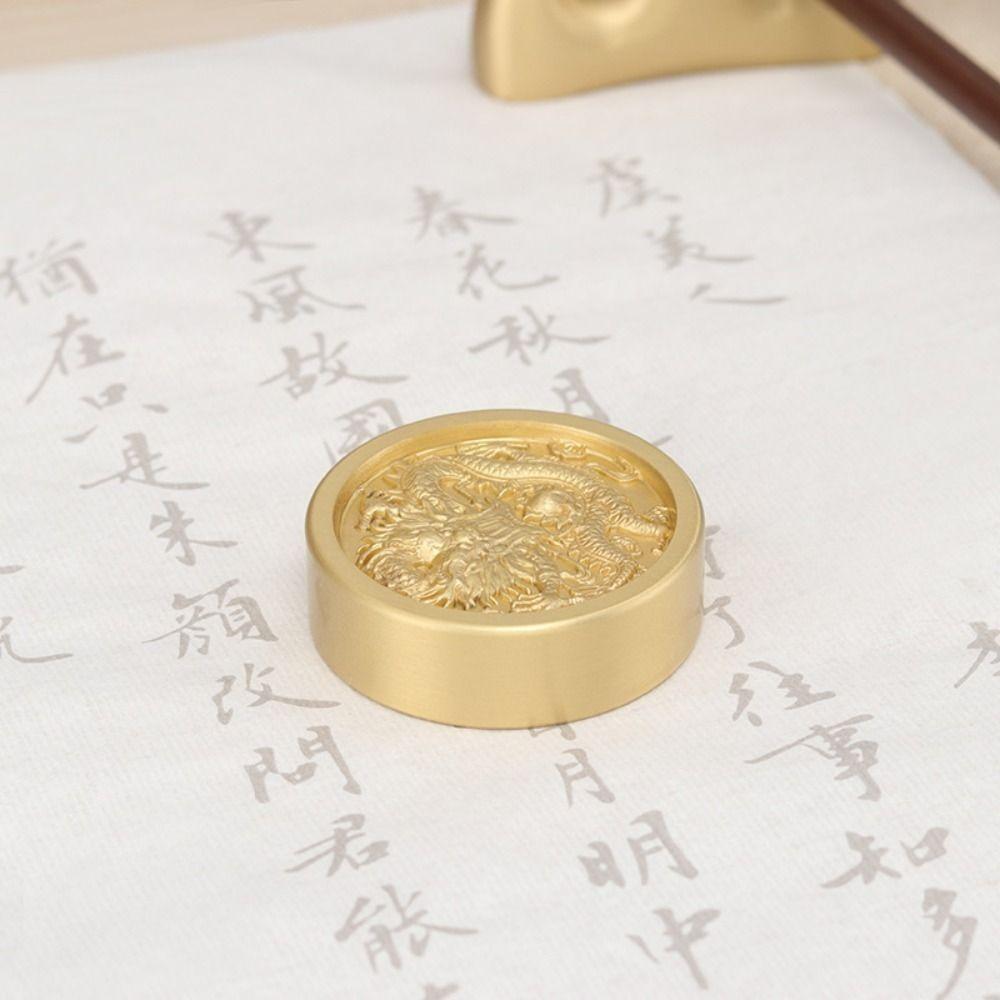 虞美人
春花秋月
了往事知多
東風故國
月明中
猶在只是朱顏改問君能